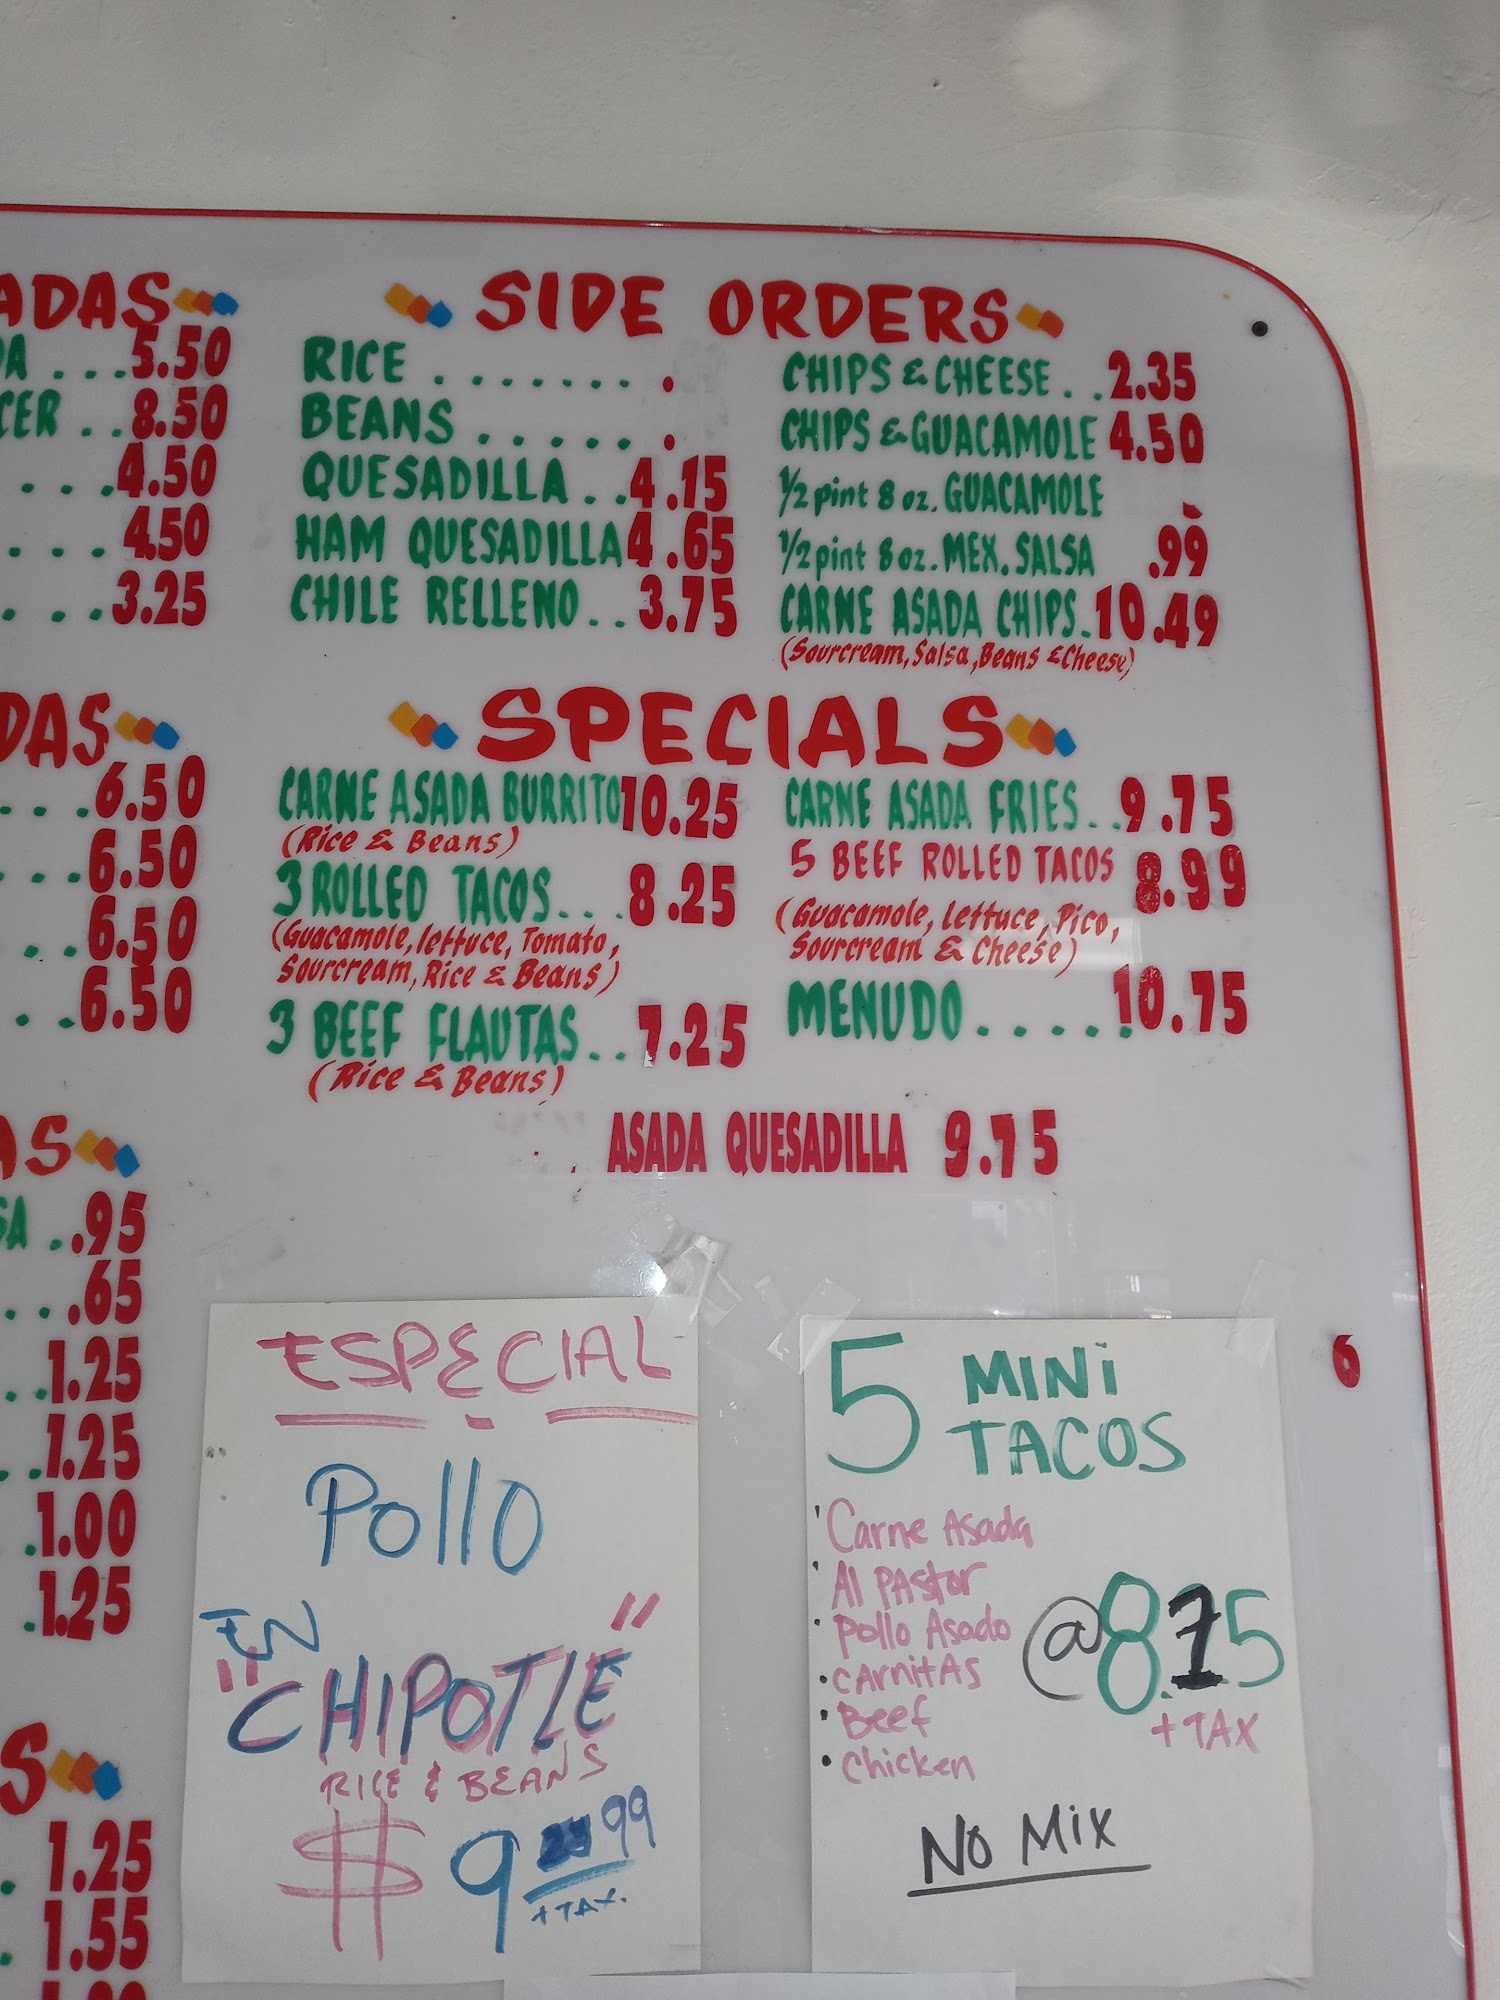 ADAS
5.50
CER . . 8.50
. . . 4.50
. . . 4.50
. . . 3.25
DAS
. . . 6.50
. . . 6.50
. . . 6.50
. . . 6.50
AS
SA . . .95
. . . .65
. . 1.25
. . 1.25
. 1.00
. 1.25
S
. 1.25
. 1.55
SIDE ORDERS
RICE . . . . . . . .
BEANS . . . . . .
QUESADILLA . . 4.15
HAM QUESADILLA 4.65
CHILE RELLENO . . 3.75
CHIPS & CHEESE . . 2.35
CHIPS & GUACAMOLE 4.50
1/2 pint 8 oz. GUACAMOLE .
1/2 pint 8 oz. MEX. SALSA .99
CARNE ASADA CHIPS. 10.49
(Sourcream, Salsa, Beans & Cheese)
SPECIALS
CARNE ASADA BURRITO 10.25
(Rice & Beans)
3 ROLLED TACOS . . . 8.25
(Guacamole, lettuce, Tomato,
Sourcream, Rice & Beans)
3 BEEF FLAUTAS . . 7.25
(Rice & Beans)
CARNE ASADA FRIES . . 9.75
5 BEEF ROLLED TACOS 8.99
(Guacamole, lettuce, Pico,
Sourcream & Cheese)
MENUDO . . . . . 10.75
ASADA QUESADILLA 9.75
ESPECIAL
Pollo
EN
"CHIPOTLE"
RICE & BEANS
$ 9 99
+ TAX.
6
5 MINi
TACOS
• Carne Asada
• Al PAstor
• Pollo Asado
• CArnitAS
• Beef
• Chicken
@ 8.75
+ TAX
No Mix